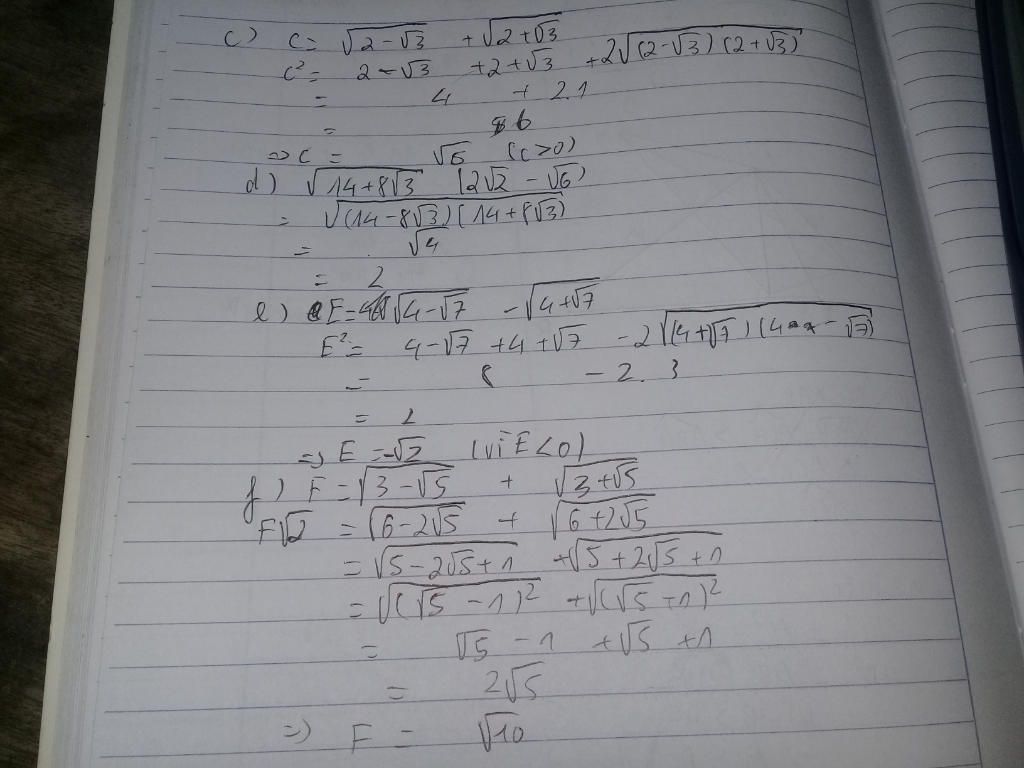 c) C = √(2 - √3) + √(2 + √3)
C² = 2 - √3 + 2 + √3 + 2√((2 - √3)(2 + √3))
= 4 + 2.1
= 6
=> C = √6 (C > 0)
d) √(14 + 8√3) (2√2 - √6)
= √((14 - 8√3)(14 + 8√3))
= √4
= 2
e) E = √(4 - √7) - √(4 + √7)
E² = 4 - √7 + 4 + √7 - 2√((4 + √7)(4 - √7))
= 8 - 2.3
= 2
=> E = -√2 (vì E < 0)
f) F = √(3 - √5) + √(3 + √5)
F√2 = √(6 - 2√5) + √(6 + 2√5)
= √(5 - 2√5 + 1) + √(5 + 2√5 + 1)
= √((√5 - 1)²) + √((√5 + 1)²)
= √5 - 1 + √5 + 1
= 2√5
=> F = √10